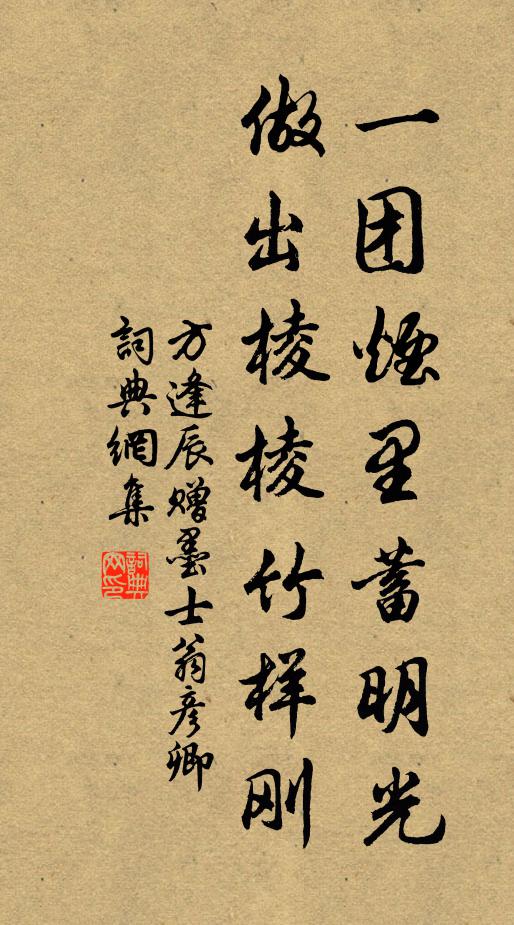 一团煙里蓄明光
做出棱棱竹样刚
方逢辰赠墨士翁彦卿
詞典網集
詞典網印